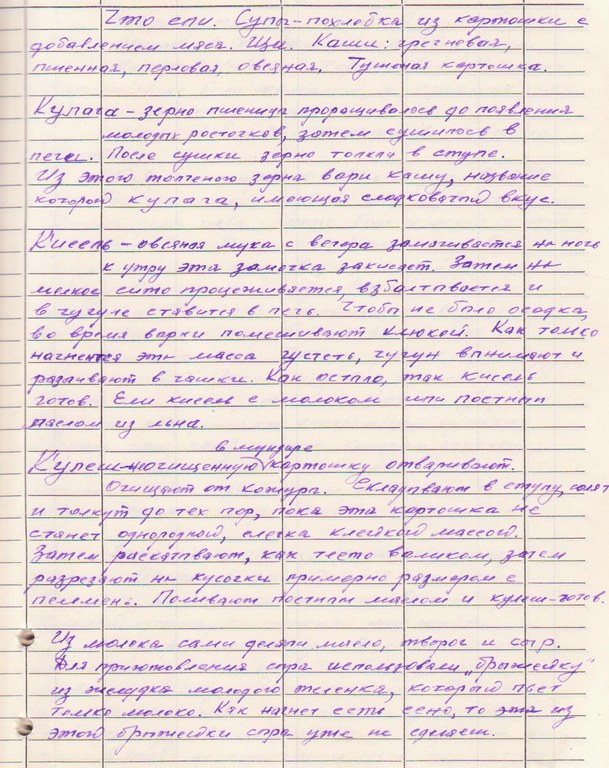 Что ели. Супы-похлебка из картошки с
добавлением мяса. Щи. Каши: гречневая,
пшенная, перловая, овсяная. Тушеная картошка.
Кулага – зерно пшеницы проращивалось до появления
молодых росточков, затем сушилось в
печи. После сушки зерно толкли в ступе.
Из этого толченого зерна вари кашу, название
которой кулага, имеющая сладковатый вкус.
Кисель – овсяная мука с вечера замачивается на ночь
к утру эта замочка закисает. Затем на
мелкое сито процеживается, взбалтывается и
в чугуне ставится в печь. Чтобы не было осадка,
во время варки помешивают клюкой. Как только
начнется эта масса густеть, чугун вынимают и
разливают в чашки. Как остыло, так кисель
готов. Ели кисель с молоком или постным
маслом из льна.
в мундире
Кулеш-неочищенную картошку отваривают.
Очищают от кожуры. Складывают в ступу, солят
и толкут до тех пор, пока эта картошка не
станет однородной, слегка клейкой массой.
Затем раскатывают, как тесто валиком, затем
разрезают на кусочки примерно размером с
пельмень. Поливают постным маслом и кулеш-готов.
Из молока сами делали масло, творог и сыр.
Для приготовления сыра использовали „брыжейку"
из желудка молодого теленка, который пьет
только молоко. Как начнет есть сено, то эта из
этой брыжейки сыра уже не сделаешь.